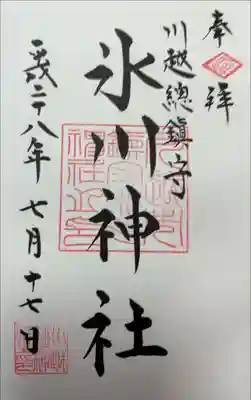 奉拝
川越總鎮守
氷川神社
平成二十八年七月十七日